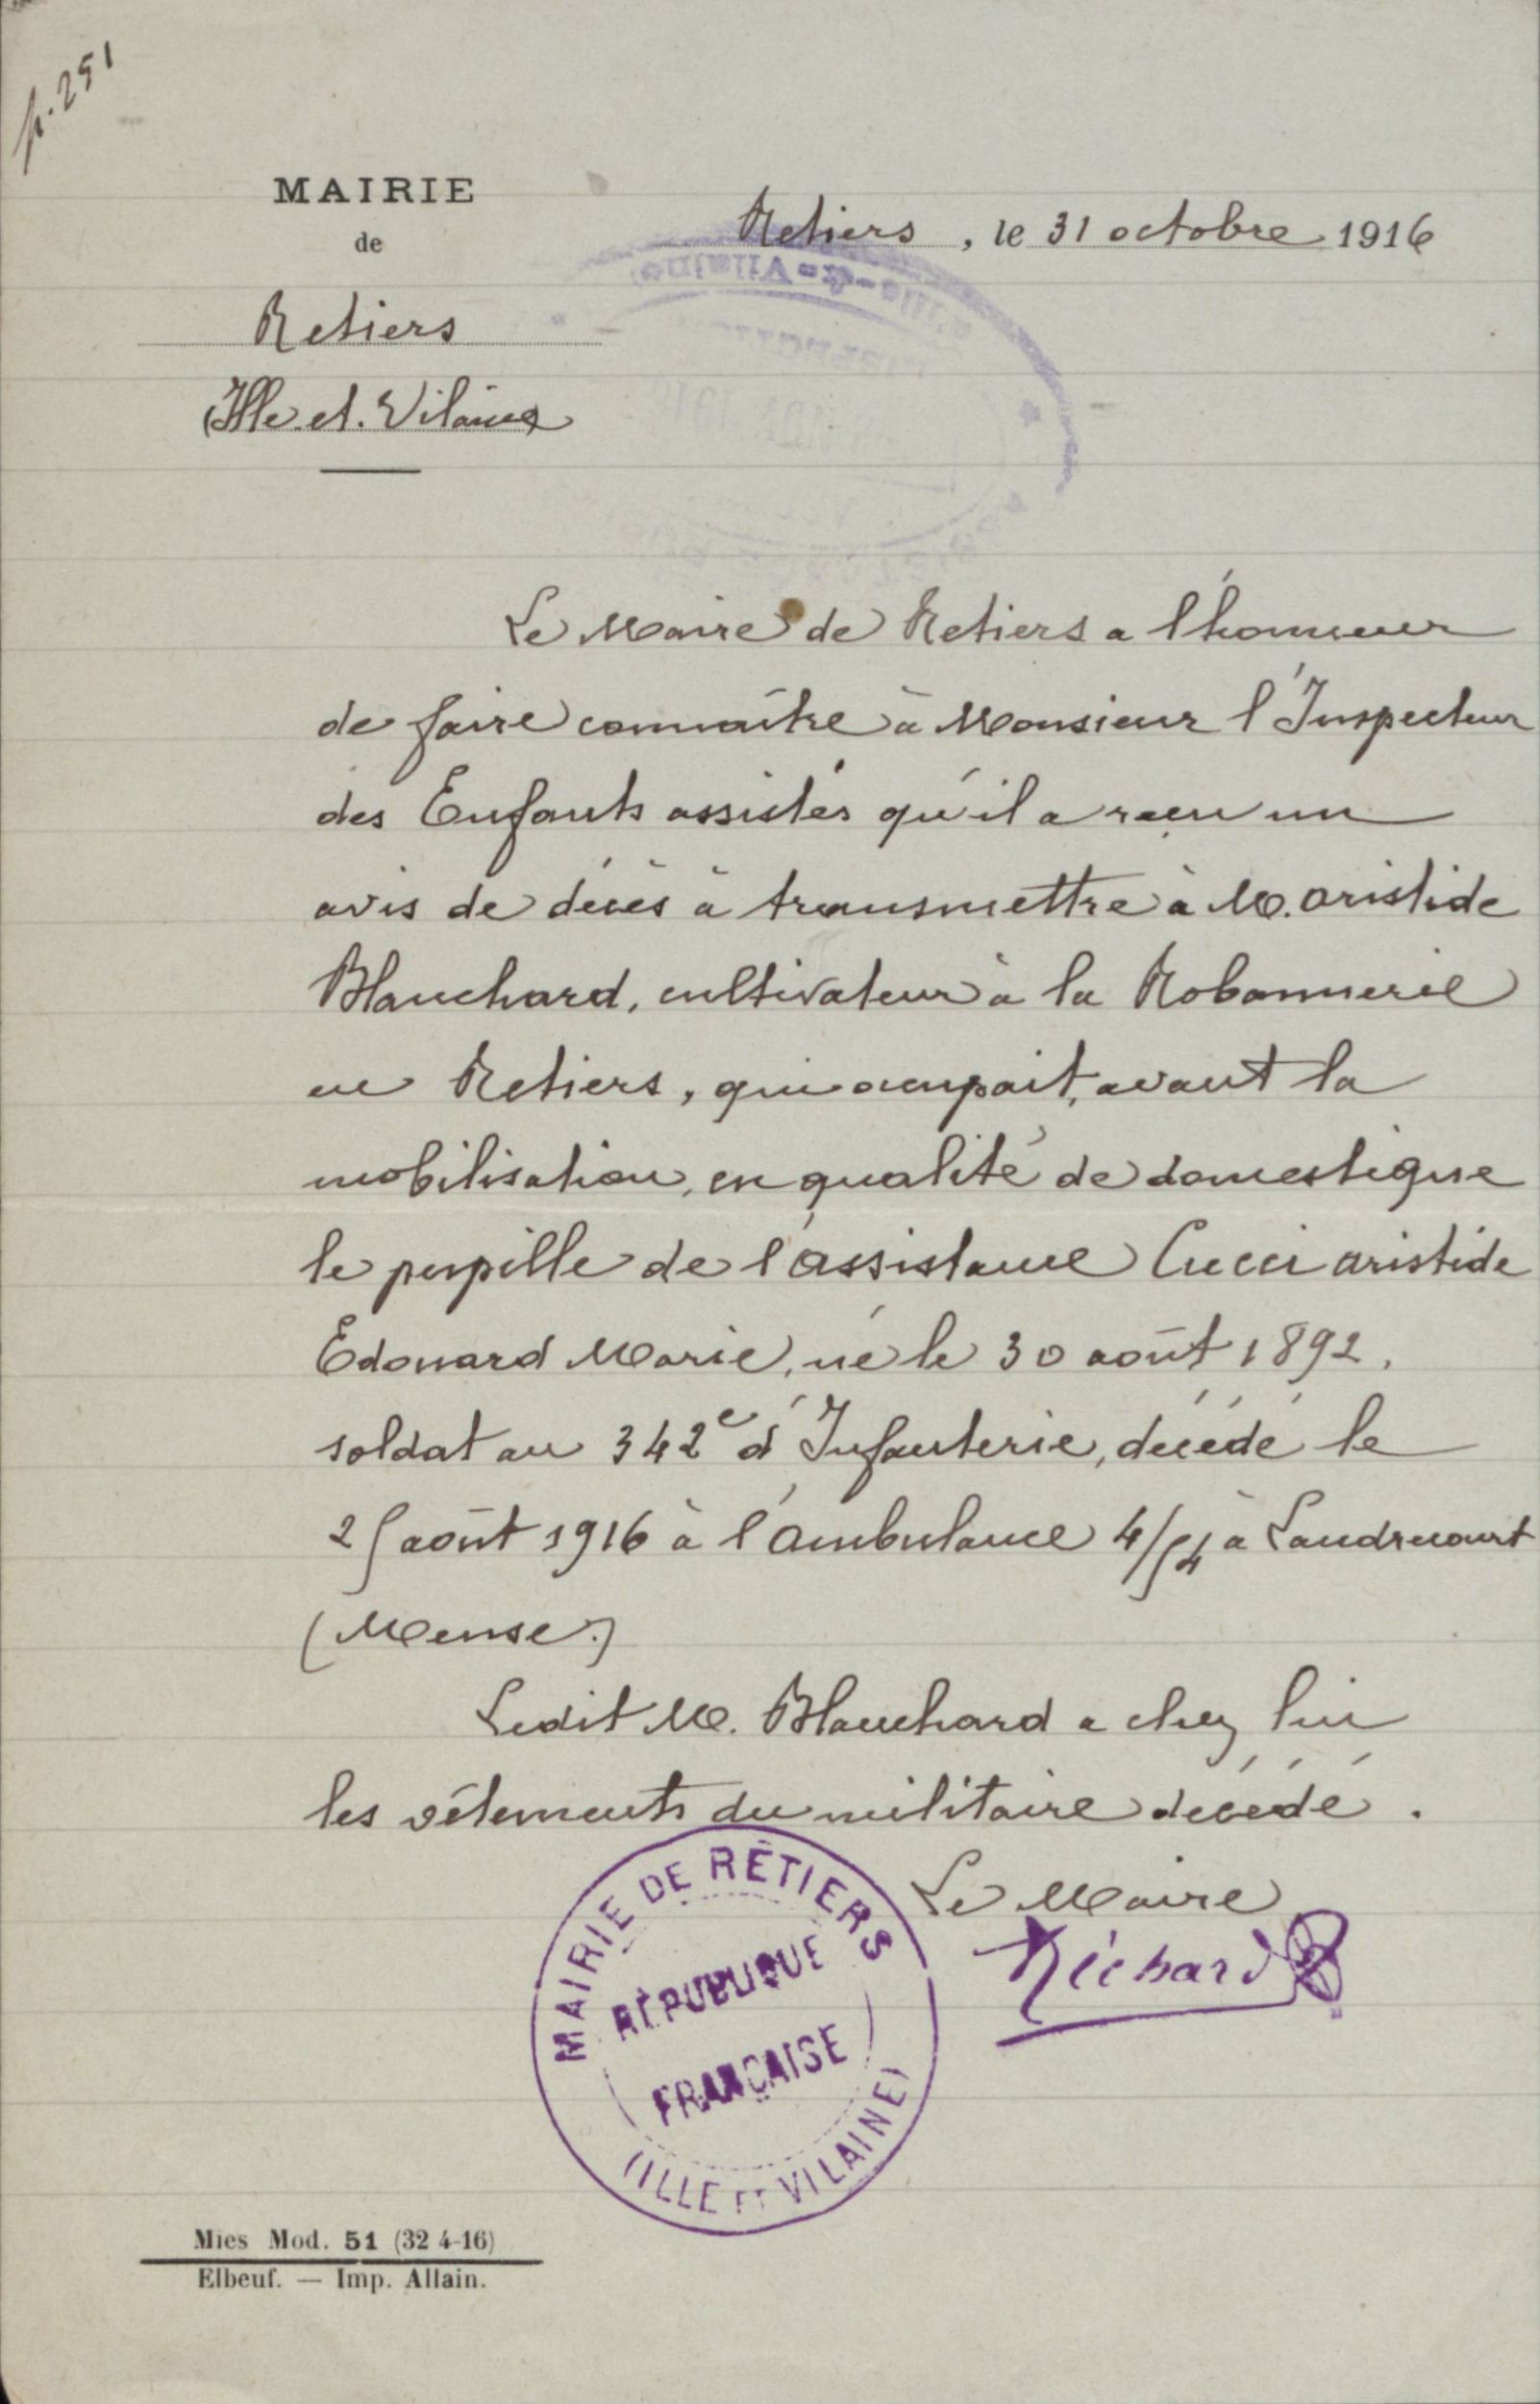 p. 251
MAIRIE
de
Retiers
(Ille et Vilaine)
Retiers, le 31 octobre 1916
Le Maire de Retiers a l'honneur
de faire connaître à Monsieur l'Inspecteur
des Enfants assistés qu'il a reçu un
avis de décès à transmettre à M. Aristide
Blanchard, cultivateur à la Robannerie
en Retiers, qui occupait, avant la
mobilisation, en qualité de domestique
le pupille de l'assistance Cucci Aristide
Edouard Marie, né le 30 août 1892,
soldat au 342e d'Infanterie, décédé le
25 août 1916 à l'Ambulance 4/54 à Landrecourt
(Meuse)
Ledit M. Blanchard a chez lui
les vêtements du militaire décédé.
Le Maire
Richard
MAIRIE DE RÉTIERS
RÉPUBLIQUE
FRANÇAISE
(ILLE ET VILAINE)
Mies Mod. 51 (32 4-16)
Elbeuf. — Imp. Allain.